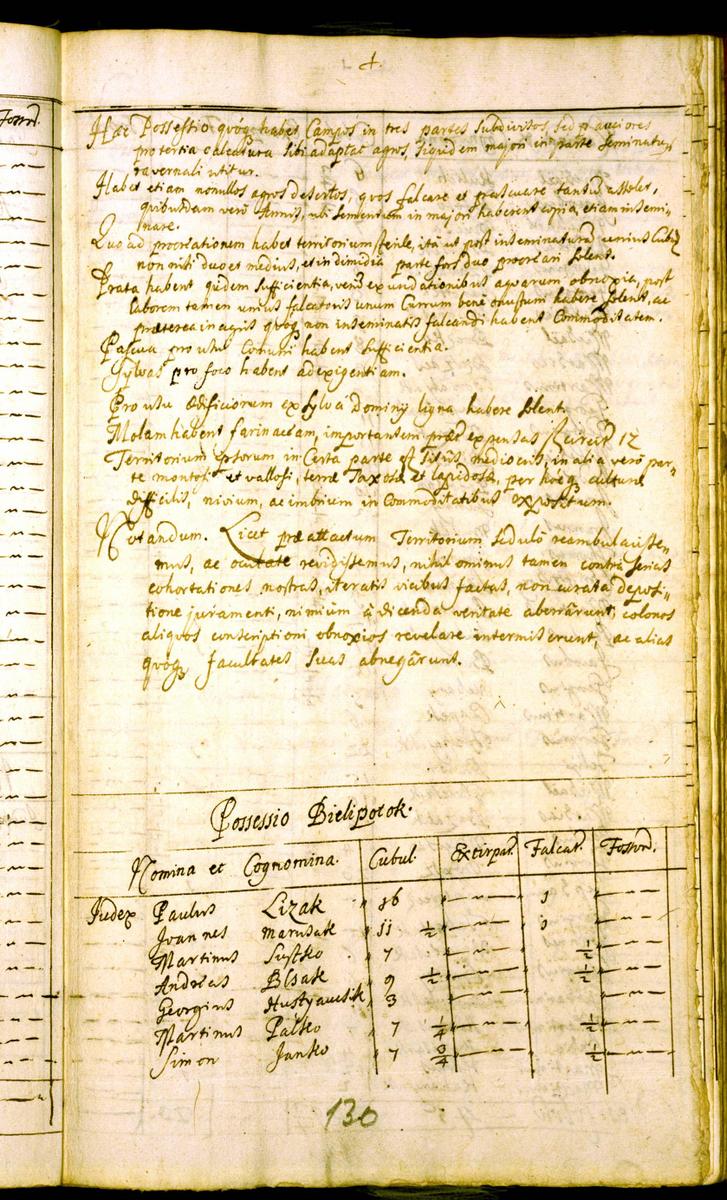 4.
Fossor.
Hæc Possessio quóq habet Campos in tres partes Subdivisos, sed pauciores
pro tertia calcatura siti adaptat agros, siquidem majori in parte Seminatu,,
ra vernali utitur.
Habet etiam nonullos agros desertos, quos falcare et pascuare tantum assolet,
quibusdam verò Annis, ubi sementum in majori haberent copia, etiam insemi,,
nare.
Quo ad procreationem habet territorium sterile, ita ut post inseminatura unius Cubul
non nisi duo et medius, et in dimidia parte fors duo procreari solent.
Prata habent quidem Sufficientia, verum exundationibus aquarum obnoxia, post
laborem tamen unius falcatoris unum Currum bene onustum habere solent, ac
præterea in agris quoq non inseminatis falcandi habent Commoditatem.
Pascua pro usu Comuni habent Sufficientia.
Sylvas pro foco habent ad exigentiam.
Pro usu Ædificiorum ex Sylva Dominii ligna habere solent.
Molam habent farinariam, importantem præter expensas 12
Territorium ipsorum in Certa parte est Situs mediocris, in alia verò par,,
te montosi et vallosi, terræ Saxosæ et lapidosæ, per hocq culturæ
difficilis, nivium, ac imbrium in Commoditatibus expositum.
Notandum. Licet præattactum Territorium seduló reambulavisse,,
mus, ac oculate revidissemus, nihil ominus tamen contra serias
cohortationes nostras, iteratis vicibus factas, non curata deposi,,
tione juramenti, nimium à dicenda veritate aberrârunt, colonos
aliquos conscriptioni obnoxios revelare intermiserunt, ac alias
quóq facultates suas abnegârunt.
Possessio Bielipotok.
Nomina et Cognomina. Cubul. Extirpat. Falcat. Fossor.
Judex Paulus Lizak " 16 — " — 1 — " —
Joannes Marusak " 11 ½ — " — 1 — " —
Martinus Sustko " 7 — " — ½ — " —
Andreas Blsak " 9 ½ — " — ½ — " —
Georgius " 3 — " — — " —
Martinus Palko " 7 ¼ — " — ½ — " —
Simon Janko " 7 ¾ — " — ½ — " —
130